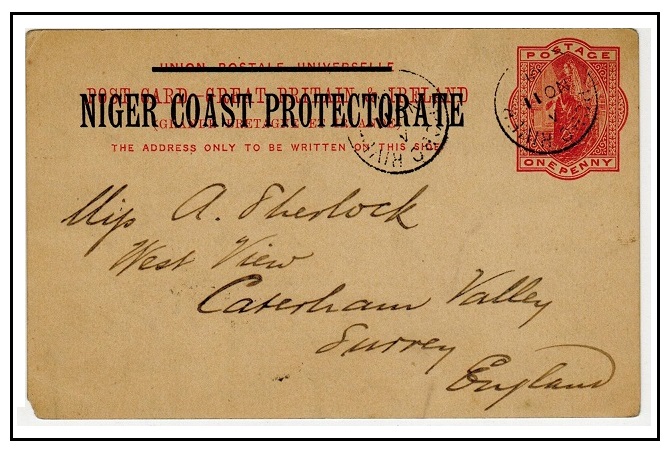 UNION POSTALE UNIVERSELLE
POST CARD - GREAT BRITAIN & IRELAND
NIGER COAST PROTECTORATE
(GRANDE BRETAGNE ET IRLANDE)
THE ADDRESS ONLY TO BE WRITTEN ON THIS SIDE
POSTAGE
ONE PENNY
Miss A. Sherlock
West View
Caterham Valley
Surrey
England